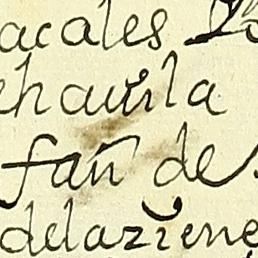 acales
chauila
fañ de
delaziene